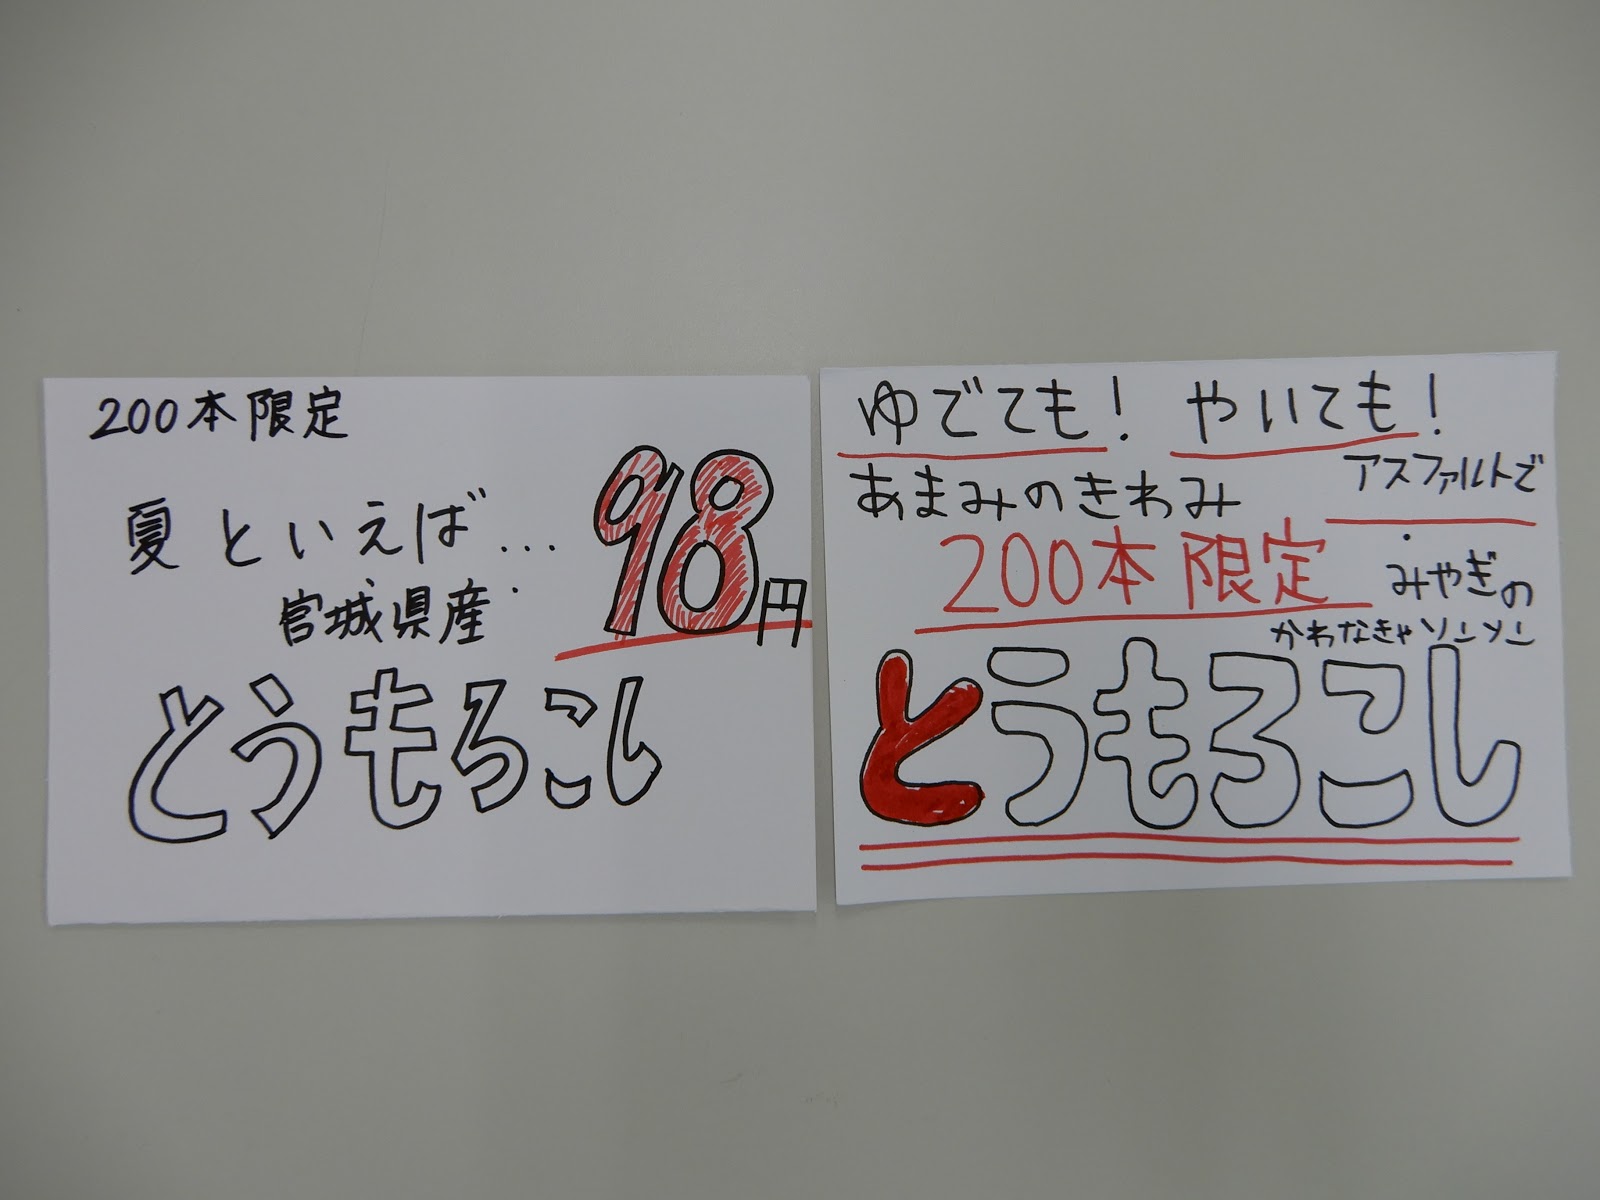 200本限定
夏といえば…
98円
宮城県産
とうもろこし
ゆでても！ やいても！
あまみのきわみ
アスファルトで
200本限定
みやぎの
かわなきゃソンソン
とうもろこし